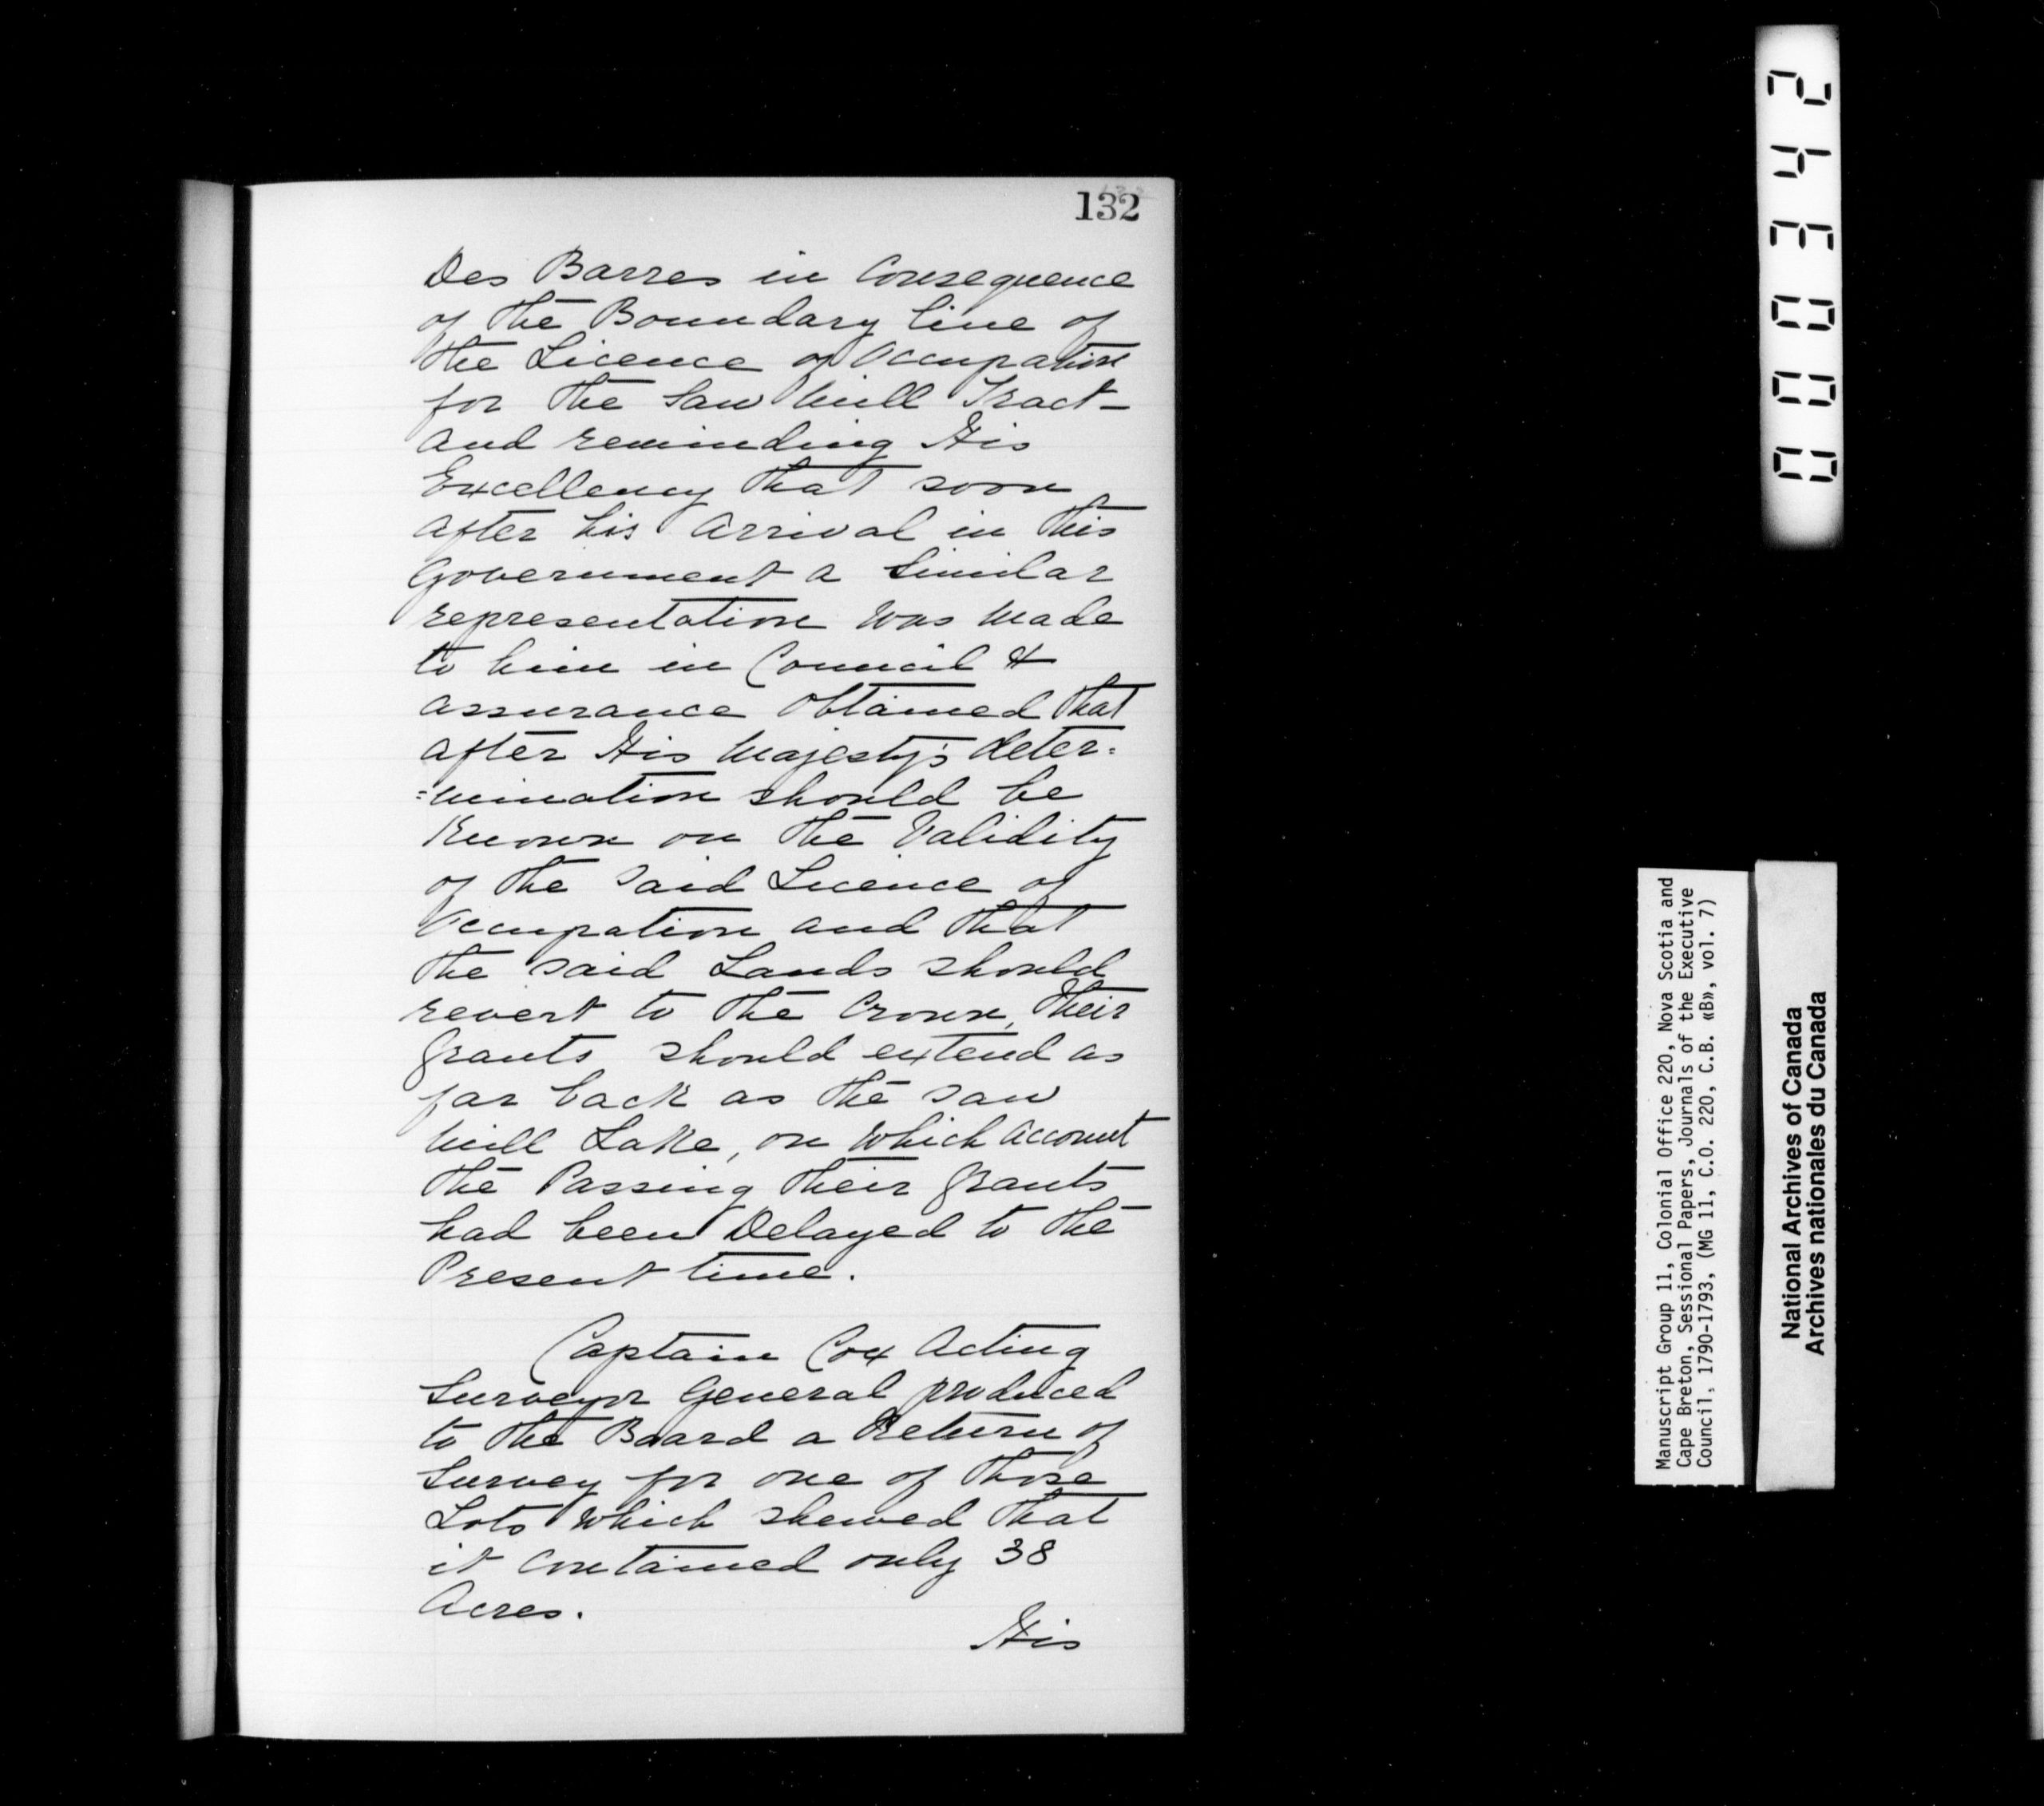 132
Des Barres in Consequence
of the Boundary line of
the Licence of Occupation
for the Saw Mill Tract—
and reminding His
Excellency that soon
after his Arrival in this
Government a Similar
representation was made
to him in Council &
assurance Obtained that
after His Majesty's deter=
=mination should be
Known on the Validity
of the Said Licence of
Occupation and that
the said Lands should
revert to the Crown, their
Grants should extend as
far back as the Saw
Mill Lake, on which account
the Passing their Grants
had been Delayed to the
Present time.
Captain Cox Acting
Surveyor General produced
to the Board a Return of
Survey for one of those
Lots which shewed that
it Contained only 38
Acres.
His
000342
Manuscript Group 11, Colonial Office 220, Nova Scotia and
Cape Breton, Sessional Papers, Journals of the Executive
Council, 1790-1793, (MG 11, C.O. 220, C.B. «B», vol. 7)
National Archives of Canada
Archives nationales du Canada